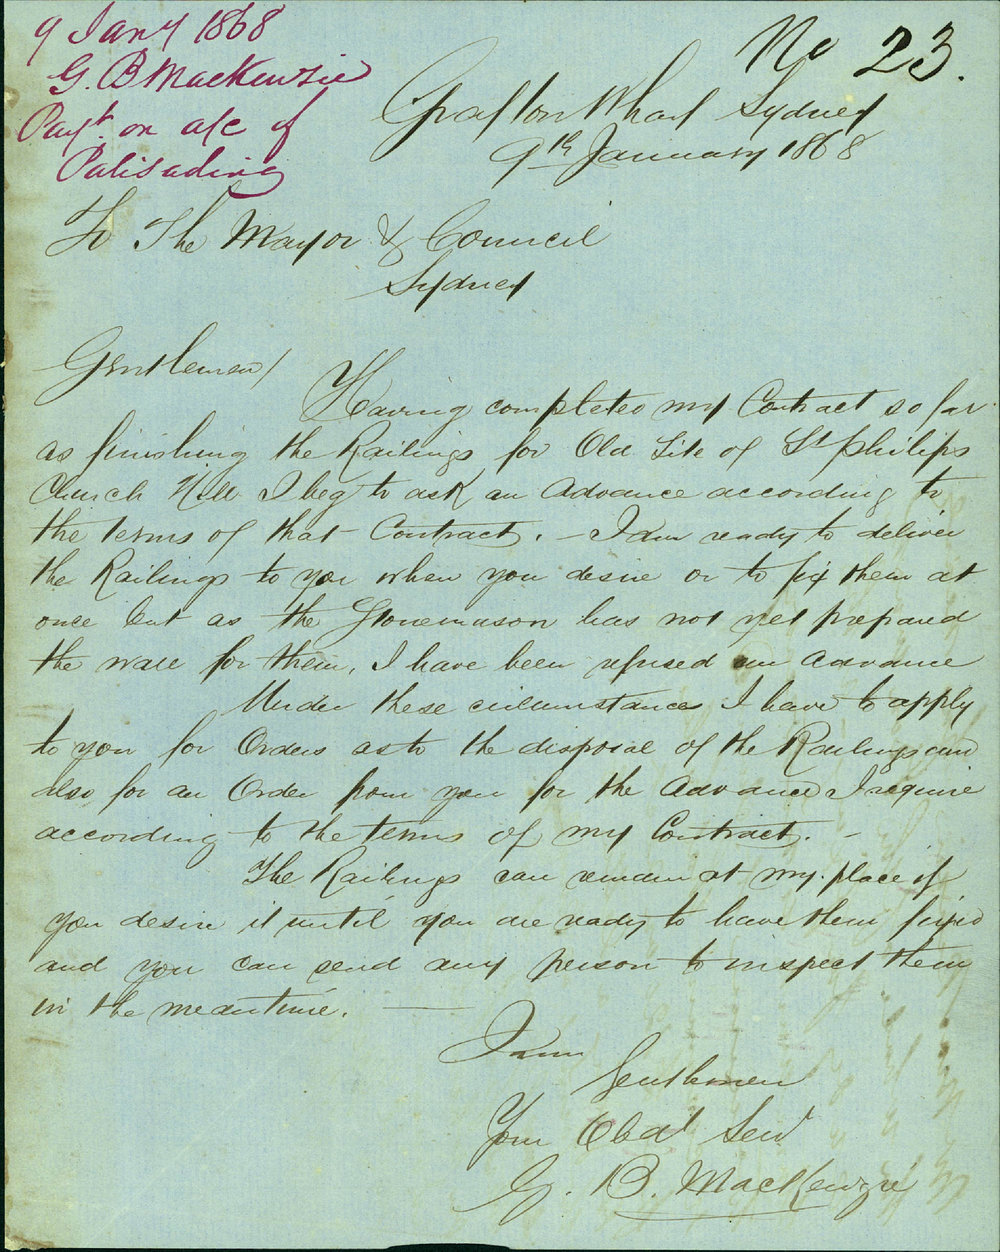 9 Jany 1868
G. B Mackenzie
Payt. on a/c of
Palisading
No 23.
Grafton Wharf Sydney
9th January 1868
To The Mayor & Council
Sydney
Gentlemen/
Having completed my Contract so far
as finishing the Railings for Old Site of St Philips
Church Hill I beg to ask an Advance according to
the terms of that Contract. – I am ready to deliver
the Railings to you when you desire or to fix them at
once but as the Stonemason has not yet prepared
the wall for them, I have been refused an advance
Under these circumstances I have to apply
to you for Orders as to the disposal of the Railings and
also for an Order from you for the Advance I require
according to the terms of my Contract. –
The Railings can remain at my place if
you desire it until you are ready to have them fixed
and you can send any person to inspect them
in the meantime. —
I am
Gentlemen
Your Obdt Servt
G. B. MacKenzie